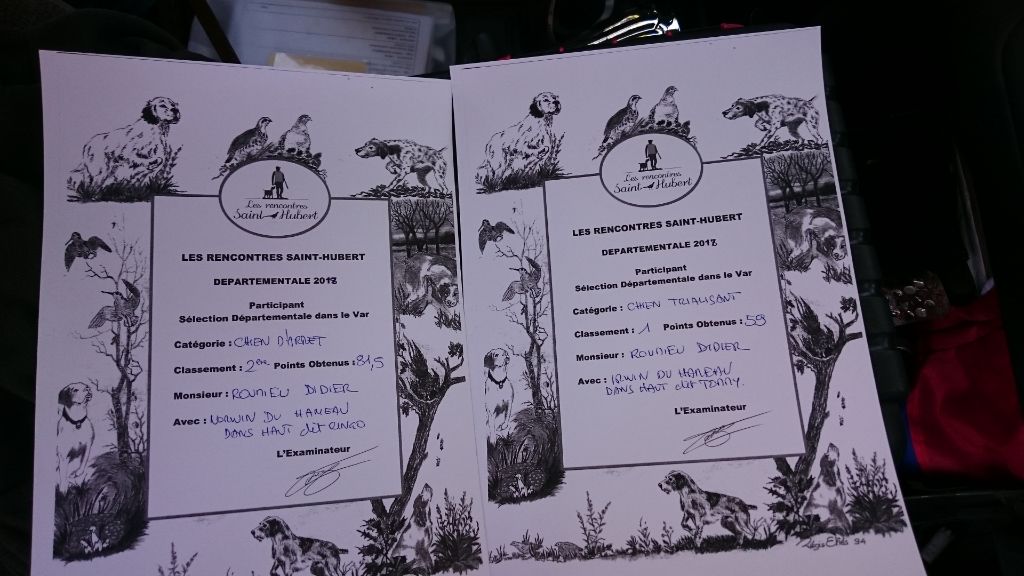 Les rencontres
Saint-Hubert
LES RENCONTRES SAINT-HUBERT
DEPARTEMENTALE 2018
Participant
Sélection Départementale dans le Var
Catégorie : CHIEN D'ARRET
Classement : 2ème Points Obtenus : 81,5
Monsieur : ROUMIEU DIDIER
Avec : DU HAMEAU
DANS HAUT dit RINGO
L'Examinateur
Les rencontres
Saint-Hubert
LES RENCONTRES SAINT-HUBERT
DEPARTEMENTALE 2018
Participant
Sélection Départementale dans le Var
Catégorie : CHIEN TRIALISANT
Classement : 1 Points Obtenus : 59
Monsieur : ROUMIEU DIDIER
Avec : IRWIN DU HAMEAU
DANS HAUT dit TOMMY.
L'Examinateur
94